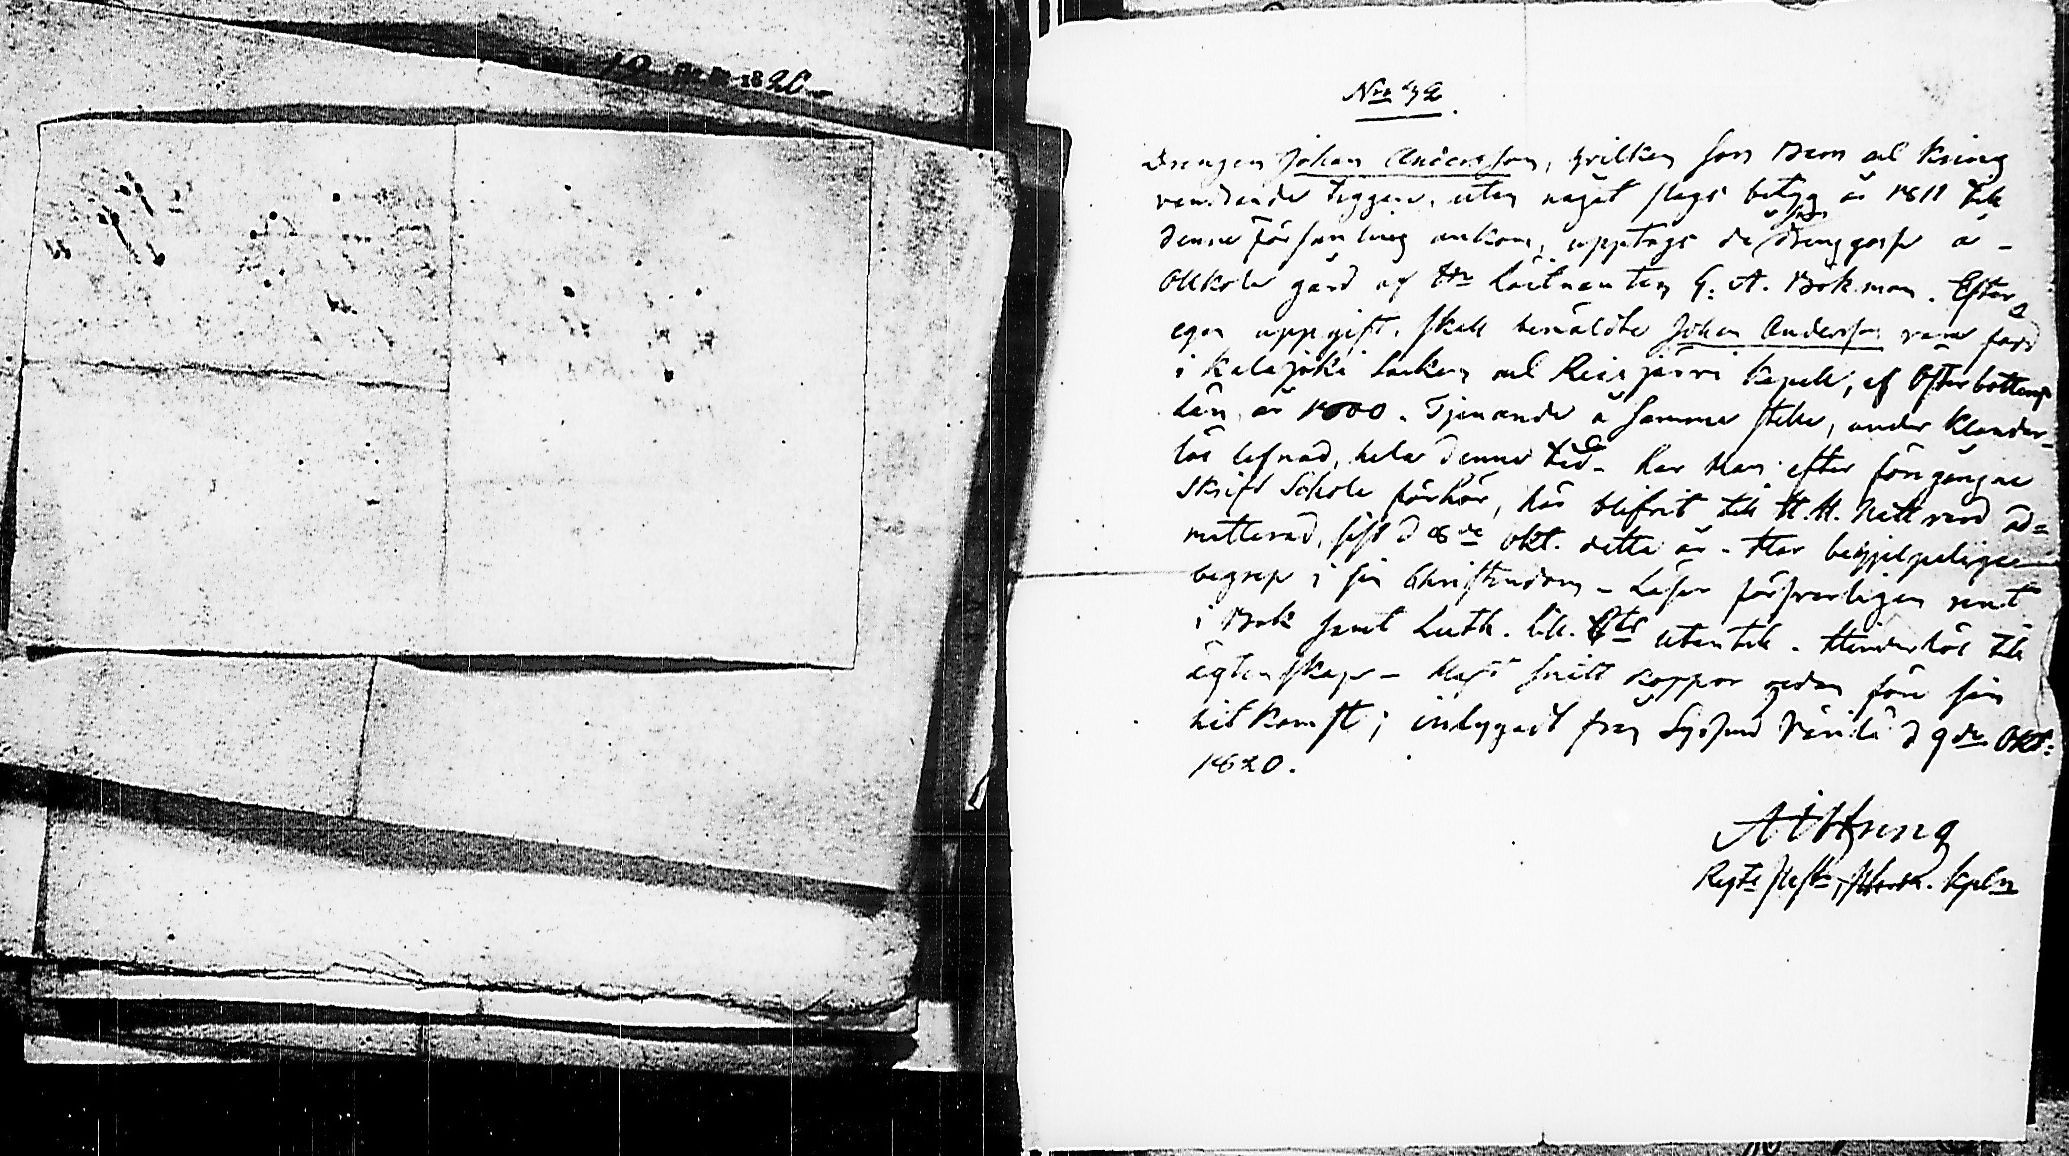 1820
Nro 42.
Drengen Johan Andersson, hvilken som Barn och kring
vandrande tiggare, utan något slags betyg år 1811 till
denne församling ankom, upptogs då såsom Drenggosse å
Ollkola gård af Hr Löitnanten G. A. Bökman. Efter
egen uppgift, skall bemälde Johan Andersson vara född
i Kalajoki Socken och Reisjärvi Capell, af Österbottens
Län, år 1800. Tjenande å samma ställe, under klander-
lös lefnad, hela denna tid. Har Han efter föregångne
Skrift Schole förhör, här blifvit till H. H. Nattvard ad=
mitterad, sist d 8de Okt. detta år. Har begripeliga
begrep i sin Christendom - Läser försvarligen rent
i Bok samt Luth. Cat. utantill. Hinderlös till
ägtenskap - Haft koppor redan före sin
hitkomst; intygadt från Sysmä d 9de Okt:
1820.
Regts Past:, Kpln